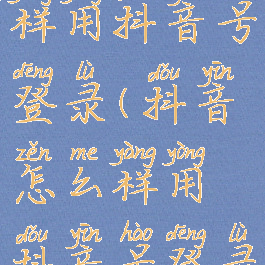 样用抖音号
dēng lù dǒu yīn
登录(抖音
zěn me yàng yòng
怎么样用
dǒu yīn hào dēng lù
抖音号登录